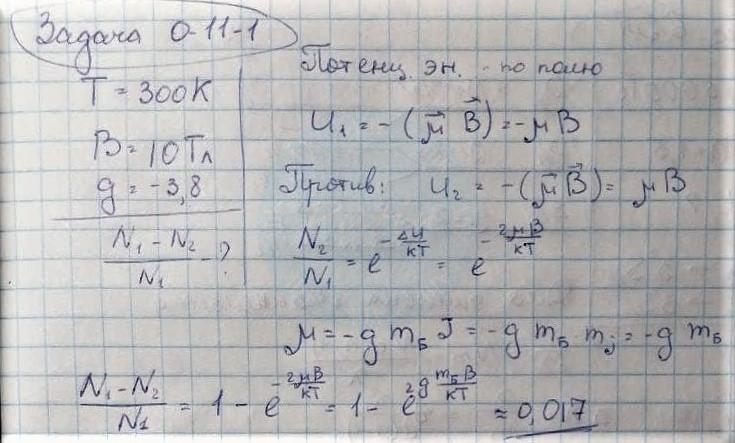 Задача 0-11-1
T = 300К
B = 10 Тл
g = -3,8
(N₁ - N₂)/N₁ - ?
Потенц. эн. - по полю
U₁ = -(μ⃗ B⃗) = -μB
Против: U₂ = -(μ⃗ B⃗) = μB
N₂/N₁ = e^(-ΔU/кT) = e^(-2μB/кT)
μ = -g m_Б J = -g m_Б · m_j = -g m_Б
(N₁ - N₂)/N₁ = 1 - e^(-2μB/кT) = 1 - e^(2g m_Б B/кT) ≈ 0,017